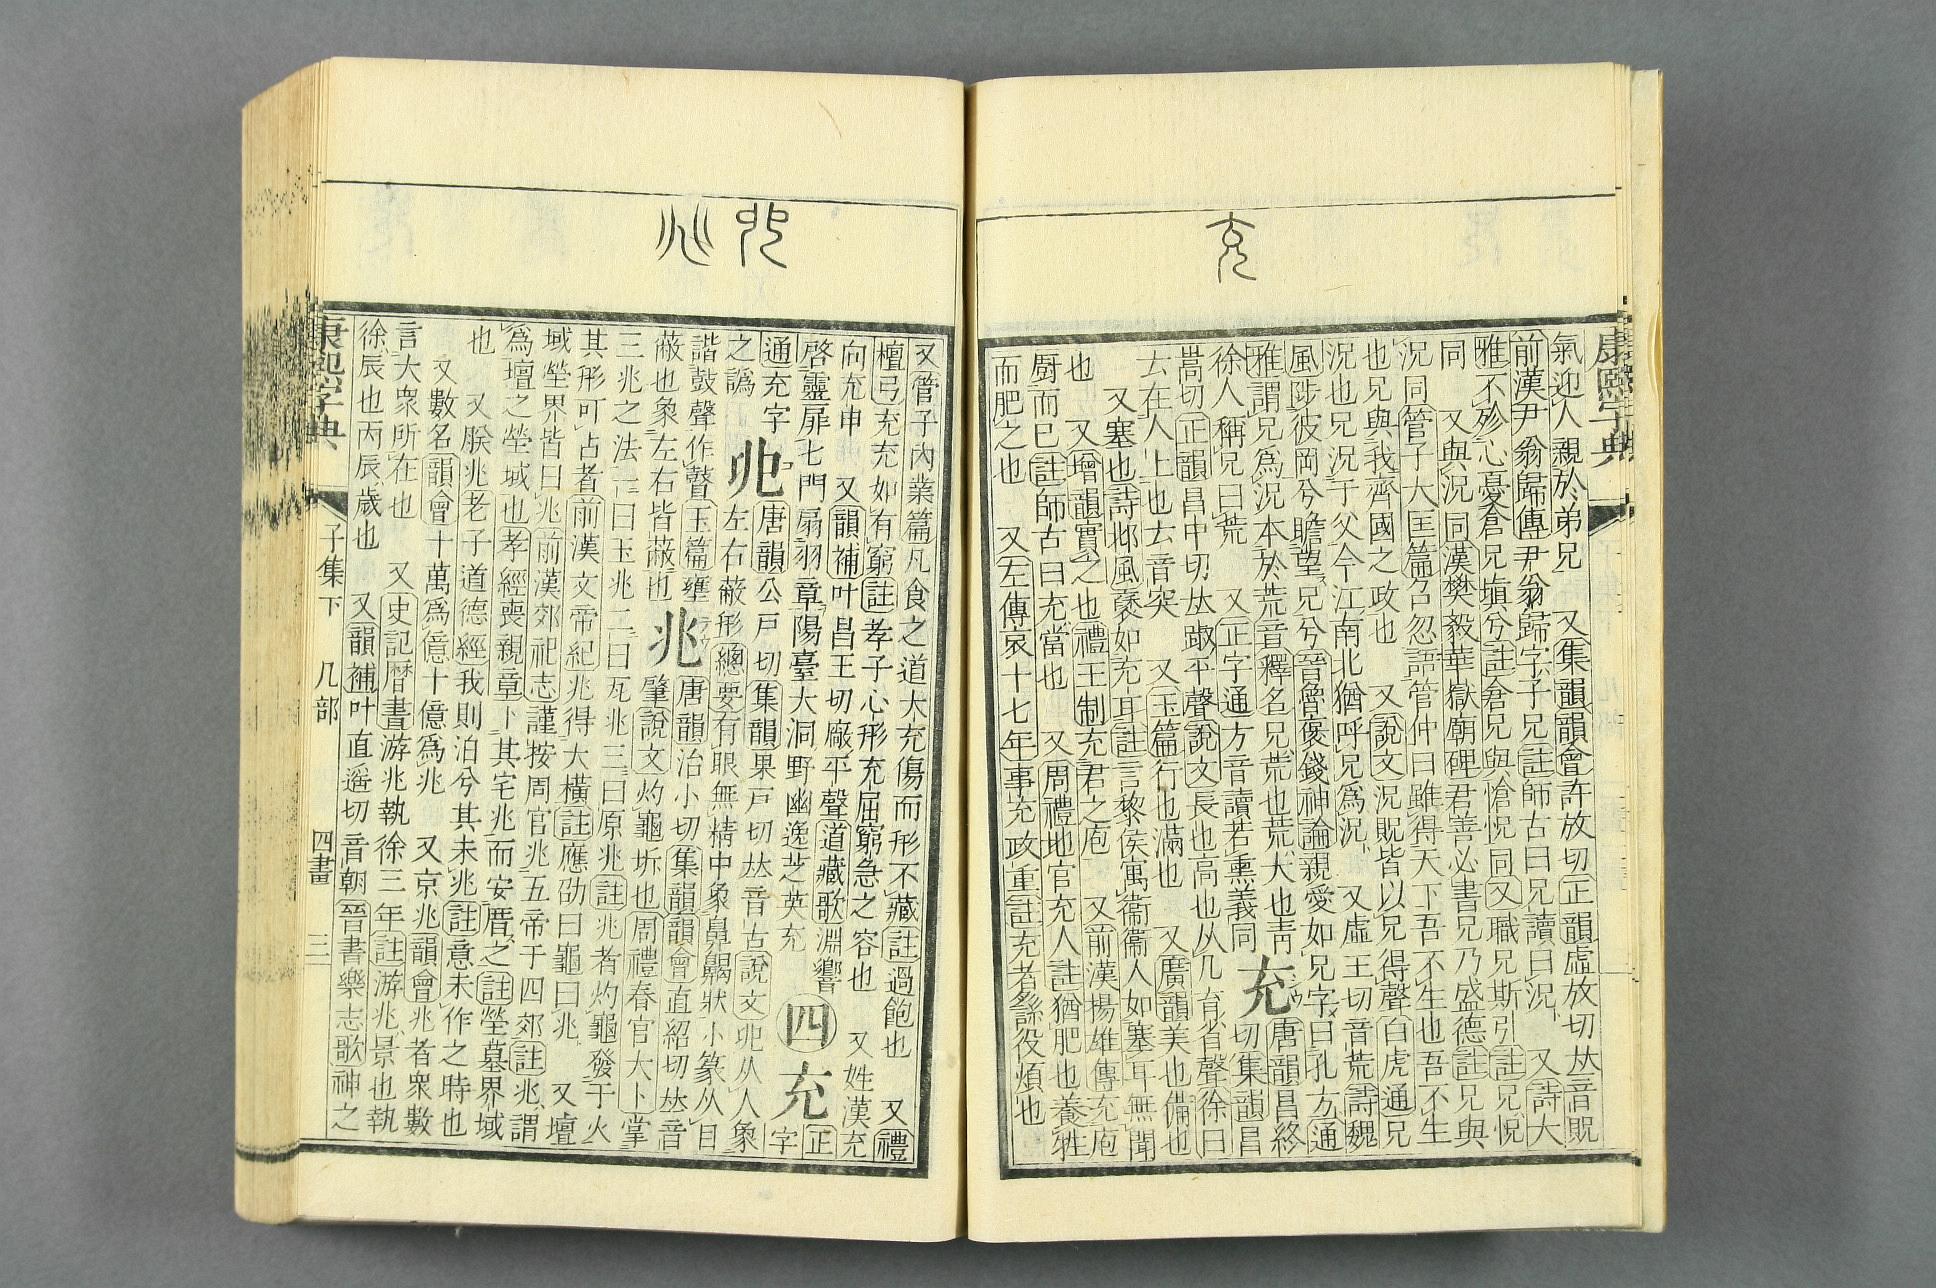 康熙字典
氣迎人親於弟兄 又集韻韻會許放切正韻虛放切𠀤音貺
前漢尹翁歸傳尹翁歸字子兄註師古曰兄讀曰況 又詩大
雅不殄心憂倉兄塡兮註倉兄與愴怳同又職兄斯引註兄怳
同 又與況同漢樊毅華獄廟碑君善必書兄乃盛德註兄與
況同管子大匡篇召忽語管仲曰雖得天下吾不生也吾不生
也兄與我齊國之政也 又說文況貺皆以兄得聲白虎通兄
況也兄況于父今江南北猶呼兄爲況 又虛王切音荒詩魏
風陟彼岡兮瞻望兄兮晉魯褒錢神論親愛如兄字曰孔方通
雅謂兄爲況本於荒音釋名兄荒也荒大也靑
徐人稱兄曰荒 又正字通方音讀若熏義同 充 唐韻昌終切集韻昌
嵩切正韻昌中切𠀤踧平聲說文長也高也从儿𠫓省聲徐曰
𠫓在人上也𠫓音突 又玉篇行也滿也 又廣韻美也備也
又塞也詩邶風褎如充耳註言黎侯寓衞衞人如塞耳無聞
也 又增韻實之也禮王制充君之庖 又前漢揚雄傳充庖
厨而已註師古曰充當也 又周禮地官充人註猶肥也養牲
而肥之也 又左傳哀十七年事充政重註充者繇役煩也
又管子內業篇凡食之道大充傷而形不藏註過飽也 又禮
檀弓充充如有窮註孝子心形充屈窮急之容也 又姓漢充
向充申 又韻補叶昌王切廠平聲道藏歌淵響
啓靈扉七門扇羽章陽臺大洞野幽逸芝英充 四 充 正字
通充字
之譌 𠑹 唐韻公戸切集韻果戸切𠀤音古說文𠑹从人象
左右蔽形總要有眼無精中象鼻齃狀小篆从目
諧鼓聲作瞽玉篇壅
蔽也象左右皆蔽也 兆 唐韻治小切集韻韻會直紹切𠀤音
肇說文灼龜坼也周禮春官大卜掌
三兆之法一曰玉兆二曰瓦兆三曰原兆註兆者灼龜發于火
其形可占者前漢文帝紀兆得大橫註應劭曰龜曰兆 又壇
域塋界皆曰兆前漢郊祀志謹按周官兆五帝于四郊註兆謂
爲壇之塋域也孝經喪親章卜其宅兆而安厝之註塋墓界域
也 又朕兆老子道德經我則泊兮其未兆註意未作之時也
又數名韻會十萬爲億十億爲兆 又京兆韻會兆者衆數
言大衆所在也 又史記曆書游兆執徐三年註游兆景也執
徐辰也丙辰歲也 又韻補叶直遥切音朝晉書樂志歌神之
康熙字典
子集下 儿部 四畫 三